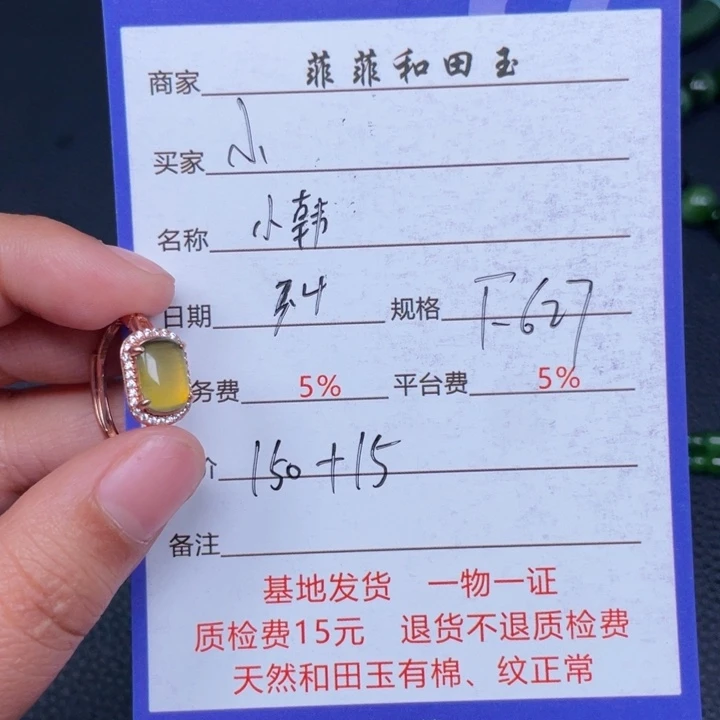 商家 菲菲和田玉
买家 小
名称 小韩
日期 34 规格 T-627
务费 5% 平台费 5%
价 150+15
备注
基地发货 一物一证
质检费15元 退货不退质检费
天然和田玉有棉、纹正常